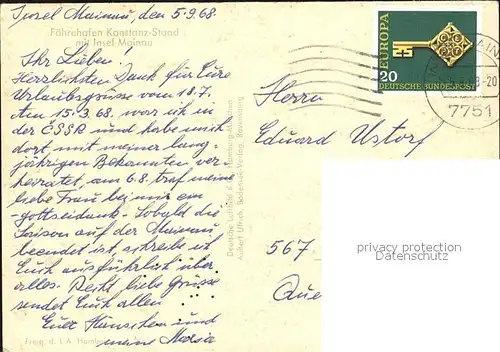 Insel Mainau, den 5.9.68.
Fährehafen Konstanz-Staad
mit Insel Mainau
Ihr Lieben!
Herzlichsten Dank für Eure
Urlaubsgrüsse vom 18.7.
Am 15.3.68. war ich in
der ČSSR und habe mich
dort mit meiner lang-
jährigen Bekannten ver-
heiratet, am 6.8. traf meine
liebe Frau bei mir ein
-gottseidank- Sobald die
Saison auf der Mainau
beendet ist schreibe ich
Euch ausführlich über
alles. Recht liebe Grüsse
sendet Euch allen
Euer Hänschen und
meine Maria
Freig. d. L.A.
Aubert Ullrich, Bodensee-Verlag, Ravensburg
EUROPA
20
DEUTSCHE BUNDESPOST
7751
Herrn
Eduard Ustorf
567
privacy protection
Datenschutz